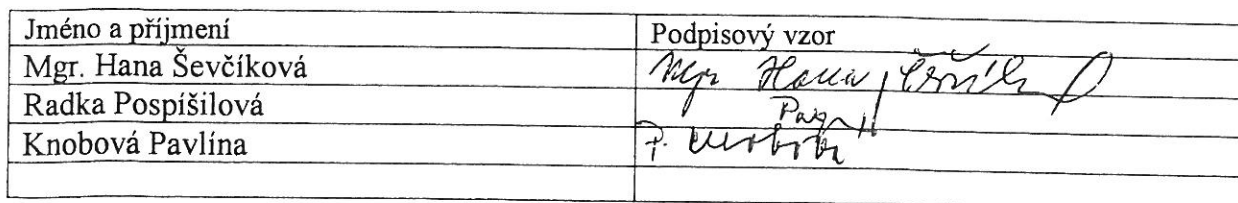 Jméno a příjmení Podpisový vzor
Mgr. Hana Ševčíková Mgr Hana
Radka Pospíšilová
Knobová Pavlína P. Knobová